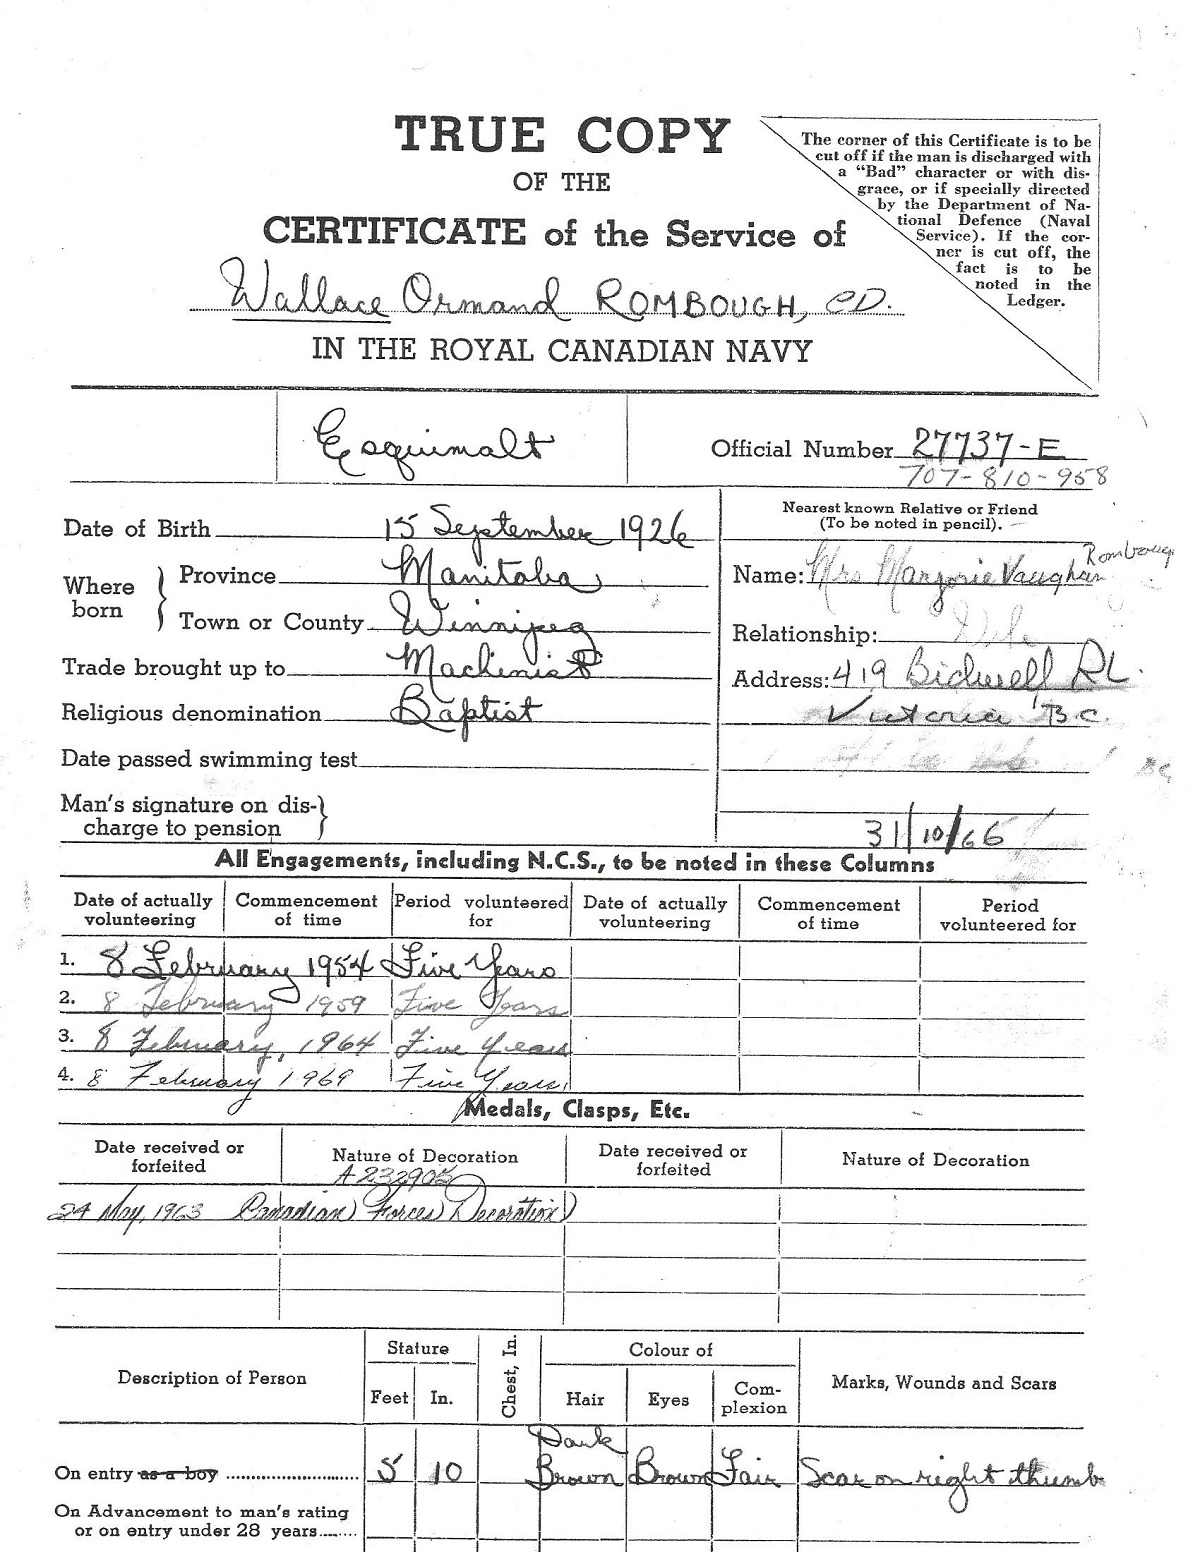 TRUE COPY
OF THE
CERTIFICATE of the Service of
Wallace Ormand ROMBOUGH, CD.
IN THE ROYAL CANADIAN NAVY
The corner of this Certificate is to be
cut off if the man is discharged with
a “Bad” character or with dis-
grace, or if specially directed
by the Department of Na-
tional Defence (Naval
Service). If the cor-
ner is cut off, the
fact is to be
noted in the
Ledger.
Esquimalt
Official Number 27737-E
707-810-958
Date of Birth 15 September 1926
Where born } Province Manitoba
Town or County Winnipeg
Trade brought up to Machinist
Religious denomination Baptist
Date passed swimming test
Man's signature on dis-
charge to pension }
Nearest known Relative or Friend
(To be noted in pencil).
Rombough
Name: Mrs Marjorie Vaughan
Relationship: Wife
Address: 419 Bidwell Rd.
Victoria B.C.
BC
31/10/66
All Engagements, including N.C.S., to be noted in these Columns
Date of actually volunteering Commencement of time Period volunteered for Date of actually volunteering Commencement of time Period volunteered for
1. 8 February 1954 Five Years
2. 8 February 1959 Five Years
3. 8 February, 1964 Five Years
4. 8 February 1969 Five Years,
Medals, Clasps, Etc.
Date received or forfeited Nature of Decoration Date received or forfeited Nature of Decoration
A232905
24 May, 1963 Canadian Forces Decoration
Description of Person Stature Feet In. Chest, In. Colour of Hair Eyes Com-plexion Marks, Wounds and Scars
On entry as a boy 5 10 Dark Brown Brown Fair Scar on right thumb
On Advancement to man's rating
or on entry under 28 years